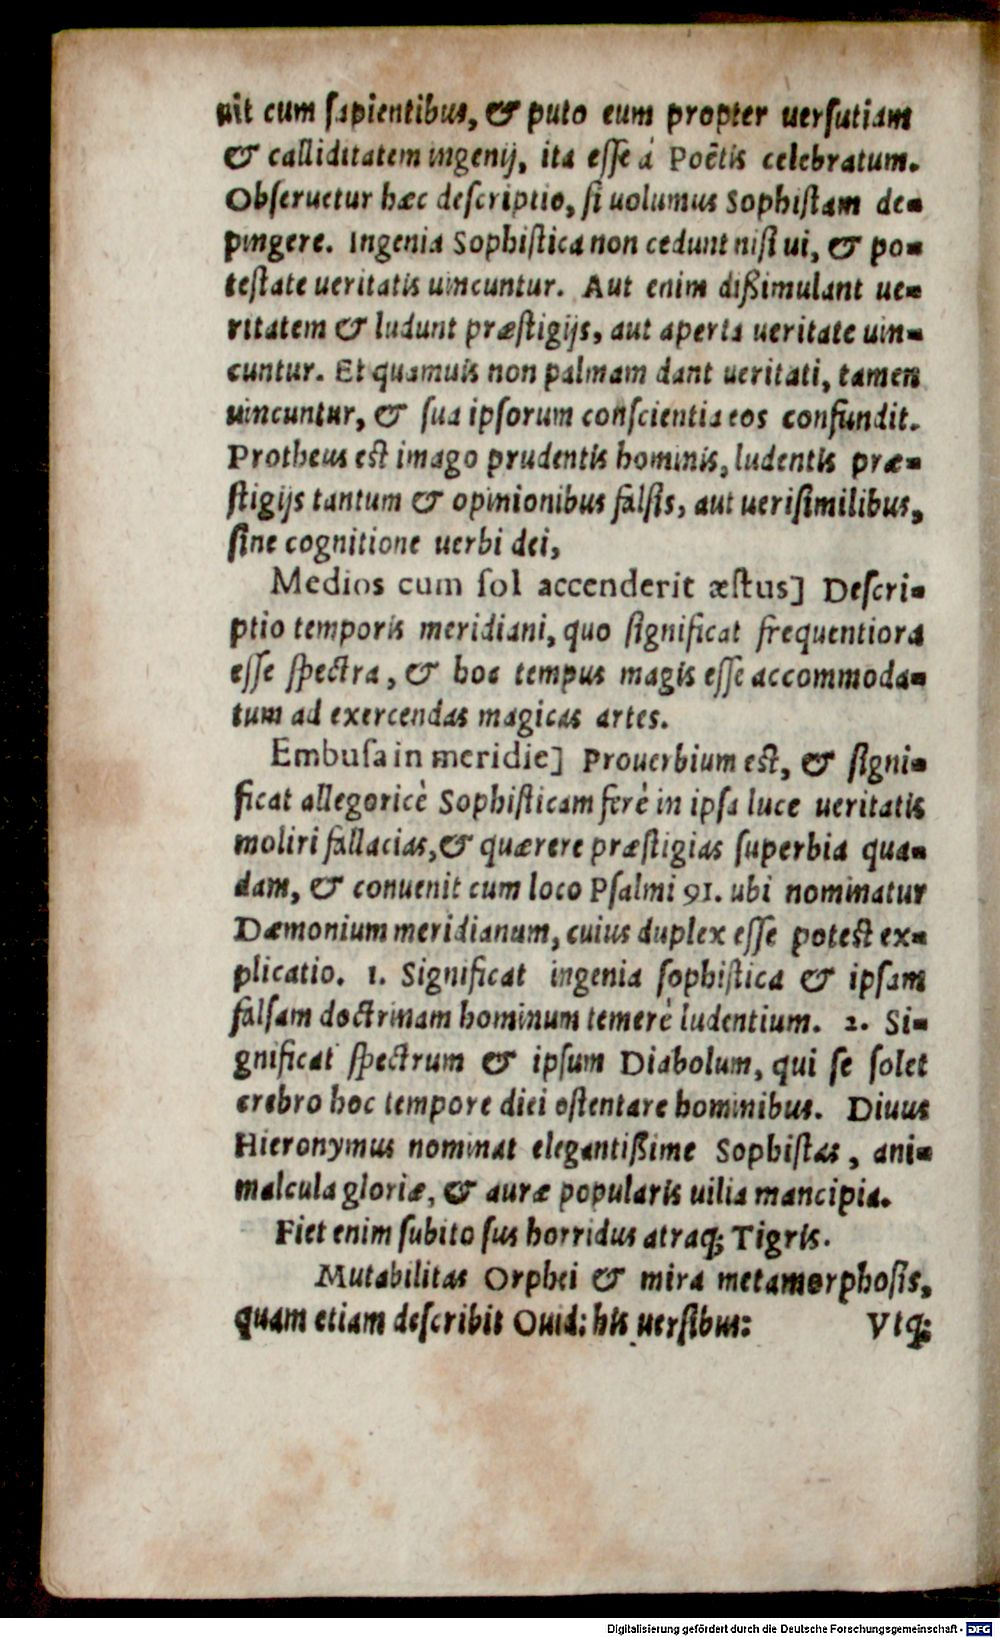 uit cum sapientibus, & puto eum propter uersutiam
& calliditatem ingenij, ita esse á Poëtis celebratum.
Obseruetur hæc descriptio, si uolumus Sophistam de-
pingere. Ingenia Sophistica non cedunt nisi ui, & po-
testate ueritatis uincuntur. Aut enim dißimulant ue-
ritatem & ludunt præstigijs, aut aperta ueritate uin-
cuntur. Et quamuis non palmam dant ueritati, tamen
uincuntur, & sua ipsorum conscientia eos confundit.
Protheus est imago prudentis hominis, ludentis præ-
stigijs tantum & opinionibus falsis, aut uerisimilibus,
sine cognitione uerbi dei,
Medios cum sol accenderit æstus] Descri-
ptio temporis meridiani, quo significat frequentiora
esse spectra, & hoc tempus magis esse accommoda-
tum ad exercendas magicas artes.
Embusa in meridie] Prouerbium est, & signi-
ficat allegoricè Sophisticam ferè in ipsa luce ueritatis
moliri fallacias, & quærere præstigias superbia qua-
dam, & conuenit cum loco Psalmi 91. ubi nominatur
Dæmonium meridianum, cuius duplex esse potest ex-
plicatio. 1. Significat ingenia sophistica & ipsam
falsam doctrinam hominum temerè ludentium. 2. Si-
gnificat spectrum & ipsum Diabolum, qui se solet
crebro hoc tempore diei ostentare hominibus. Diuus
Hieronymus nominat elegantißime Sophistas, ani-
malcula gloriæ, & auræ popularis uilia mancipia.
Fiet enim subito sus horridus atraq; Tigris.
Mutabilitas Orphei & mira metamorphosis,
quam etiam describit Ouid: his uersibus: Vtq;
Digitalisierung gefördert durch die Deutsche Forschungsgemeinschaft - DFG